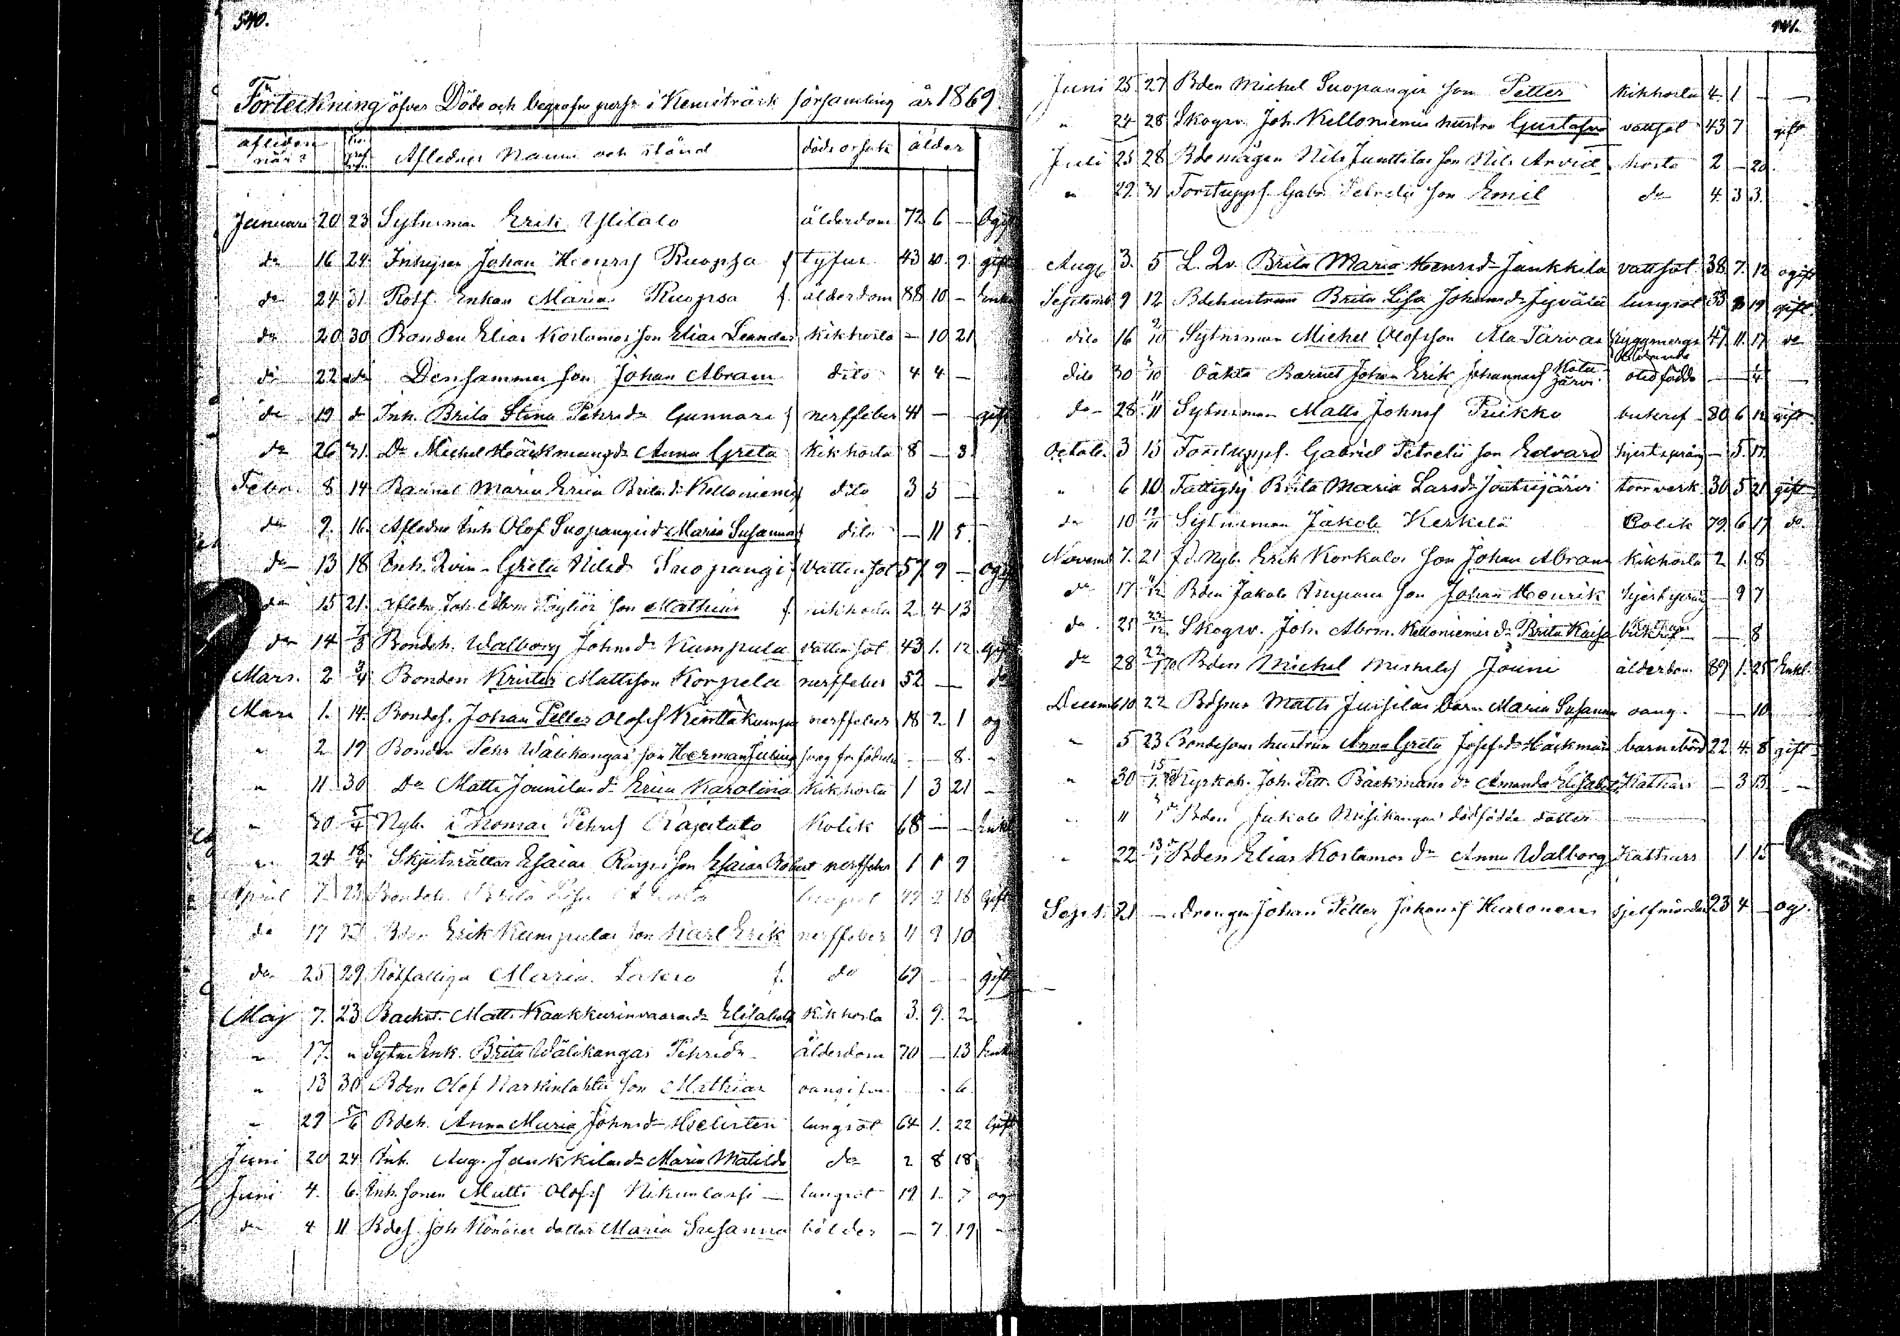 540.
Förteckning öfver Döde och begrafne perss i Kemiträsk församling år 1869
afleden när? Aflednes Namn och stånd dödsorsak ålder
Januari 20 23 Sytnisman Erik Ylitalo ålderdom 72 6 — Ogift
do 16 24 Inhysen Johan Henrss Ruopsa f tyfus 43 10 9 gift
do 24 31 Rotf. Enkan Maria Ruopsa f. ålderdom 88 10 — Enka
do 20 30 Bonden Elias Kostamos son Elias Leander kikhosta — 10 21
do 22 do Densammes son Johan Abram dito 4 4 —
do 19 do Inh. Brita Stina Pehrsdr Gunnari f nerffeber 41 — — gift
do 26 31. Do Michel Häckmans dr Anna Greta Kikhosta 8 — 3
Febr. 8 14 Barnet Maria Erica Brita dr Kelloniemi dito 3 5 —
do 9. 16. Afledne Inh Olof Suopangis dr Maria Susanna dito — 11 5.
do 13 18 Inh. Qvin. Greta Nilsd Suopangi f Vattensot 57 9 — ogift
do 15 21. Afledn Joh. Abrm son Mathias f. kikhosta 2 4 13
do 14 7/3 Bondeh. Walborg Johnsd Kumpula vattensot 43 1. 12 Gift
Mars. 2 3/4 Bonden Krister Mattsson Korpela nerffeber 52 — do
Mars 1. 14. Bondes. Johan Petter Olofss Kumpu nerffeber 18 2 1 og
" 2 19 Bonden Pehr Wälikangas son Herman Julius svag fr födseln — — 8.
" 11. 30 Do Matts Jounilas dr Erica Karolina Kikhosta 1 3 21 —
" 30 5/4 Nyb. Thomas Pehrss Rajatalo Kolik 68 — — Enkl
" 24 18/4 Skjutsrättar Esaias son Esaias Robert nerffeber 1 1 9
April 7 23 Bondeh. Brita Lisa lungsot 2 18 Gift
do 17 Bden Erik Kumpulas son Karl Erik nerffeber 11 9 10
do 25 29 Rotfattiga Maria f. do 69 — — gift
Maj 7. 23 Backst. Matts Kaakkurinvaaras dr Elisabeth kikhosta 3. 9. 2
" 17. " Sytn Enk. Brita Wälikangas Pehrsdr ålderdom 70 — 13 Enka
" 13 30 Bden Olof Narkinlahtis son Mathias oangifven 6
" 29 5/6 Bdeh. Anna Maria Johnsd Hietisten lungsot 64 1. 22 Gift
Juni 20 24 Inh. Aug. Jaukkilas dr Maria Matilda do 2 8 18
Juni 4. 6. Inh. sonen Matts Olofss lungsot 19 1. 7 og
do 4 11 Bdes. Joh Könönens dotter Maria Susanna bölder — 7 19 —
541.
Juni 25 27 Bden Michel Suopangis son Petter kikhosta 4 1 — —
" 24 28 Skogsv. Joh. Kelloniemis hustru Gustafva vattsot 43 7 gift
Juli 25 28 Bdemågen Nils Junttilas son Nils Arvid hosta 2 — 20.
" 29 31 Forstuppf. Gabr. Petrelii son Emil do 4 3 3.
Aug. 3. 5 L. Qv. Brita Maria Henrsd Jaukkila vattsot 38 7. 12 ogift
Septemb 9 12 Bdehustrun Brita Lisa Johansdr Jyvälä lungsot 53 8 19 gift
dito 16 2/10 Sytnisman Michel Olofsson Ala Tärvas Ryggmergs lidande 47 11. 17 do
dito 30 3/10 Oäkta Barnet Johan Erik Johannass Katajärvi otidfödde — — 1/4 —
do 28 11/11 Sytnisman Matts Johnss Puikko bukref 80 6 12 gift
October 3 15 Forstuppf. Gabriel Petrelii son Edvard hjertspräng — 5. 17
" 6 10 Fattighj Brita Maria Larsdr Joutsijärvi torrverk 30 5 21 gift
do 10 14/11 Sytnisman Jakob Kerkelä Colik 79. 6 17 do
Novemb 7. 21 f.d. Nyb. Erik Korkalas son Johan Abram kikhosta 2 1. 8
do 17 5/12 Bden Jakob Impiös son Johan Henrik hjertspräng — 9 7
do 21 22/12 Skogsv. Joh. Abrm. Kelloniemis dr Brita Kaisa Katharr — — 8
do 28 22/1 70 Bden Michel Michelss Jouni ålderdom 89 1. 25 Enkl.
Decemb 10 22 Matts Jussilas barn Maria Susanna oang. — — 10
" 5 23 Bondesons hustrun Anna Greta Josefsdr Häckman barnsbörd 22 4. 8 gift
" 30 15/1 70 Kyrkoh. Joh. Pett. Bäckmans dr Amanda Elisabet Katharr — 3 13 — —
" 11 Bden Jakob Niskikangas dödfödde dotter
" 22 13/1 Bden Elias Kostamos dr Anna Walborg Katharr 1 15
Sept. 21 — Drengen Johan Petter Johanss Hurtonen sjelfmördare 23 4 — og.